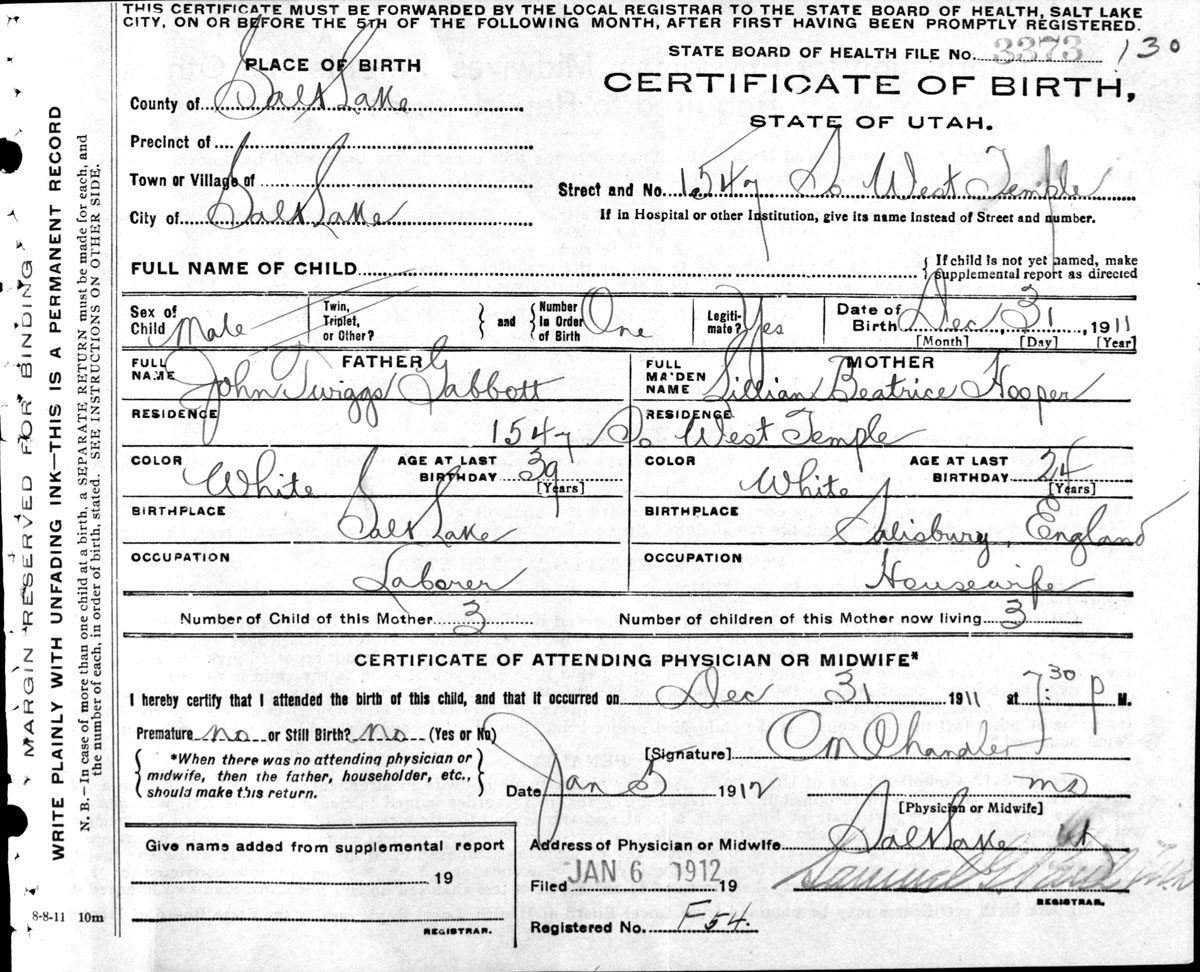 THIS CERTIFICATE MUST BE FORWARDED BY THE LOCAL REGISTRAR TO THE STATE BOARD OF HEALTH, SALT LAKE
CITY, ON OR BEFORE THE 5TH OF THE FOLLOWING MONTH, AFTER FIRST HAVING BEEN PROMPTLY REGISTERED.
STATE BOARD OF HEALTH FILE No. 3373 130
PLACE OF BIRTH
CERTIFICATE OF BIRTH,
STATE OF UTAH.
County of Salt Lake
Precinct of
Town or Village of
Street and No. 1547 So West Temple
City of Salt Lake
If in Hospital or other Institution, give its name instead of Street and number.
FULL NAME OF CHILD
If child is not yet named, make
supplemental report as directed
Sex of
Child Male
Twin,
Triplet,
or Other?
and
Number
in Order
of Birth One
Legiti-
mate? Yes
Date of
Birth Dec 31, 1911
[Month] [Day] [Year]
FATHER
FULL
NAME John Twiggs Tabbott
MOTHER
FULL
MAIDEN
NAME Lillian Beatrice Hooper
RESIDENCE
RESIDENCE
1547 So West Temple
COLOR White
AGE AT LAST
BIRTHDAY 39
[Years]
COLOR White
AGE AT LAST
BIRTHDAY 24
[Years]
BIRTHPLACE Salt Lake
BIRTHPLACE Salisbury, England
OCCUPATION Laborer
OCCUPATION Housewife
Number of Child of this Mother 3
Number of children of this Mother now living 3
CERTIFICATE OF ATTENDING PHYSICIAN OR MIDWIFE*
I hereby certify that I attended the birth of this child, and that it occurred on Dec 31 1911 at 7:30 P M.
Premature No or Still Birth? No (Yes or No)
*When there was no attending physician or
midwife, then the father, householder, etc.,
should make this return.
[Signature] C M Chandler
Date Jan 5 1912 MD
[Physician or Midwife]
Give name added from supplemental report
19
REGISTRAR.
Address of Physician or Midwife Salt Lake Ut
Filed JAN 6 1912 19
Samuel G
REGISTRAR.
Registered No. F54.
8-8-11 10m
MARGIN RESERVED FOR BINDING
WRITE PLAINLY WITH UNFADING INK—THIS IS A PERMANENT RECORD
N. B.—In case of more than one child at a birth, a SEPARATE RETURN must be made for each, and
the number of each, in order of birth, stated. SEE INSTRUCTIONS ON OTHER SIDE.